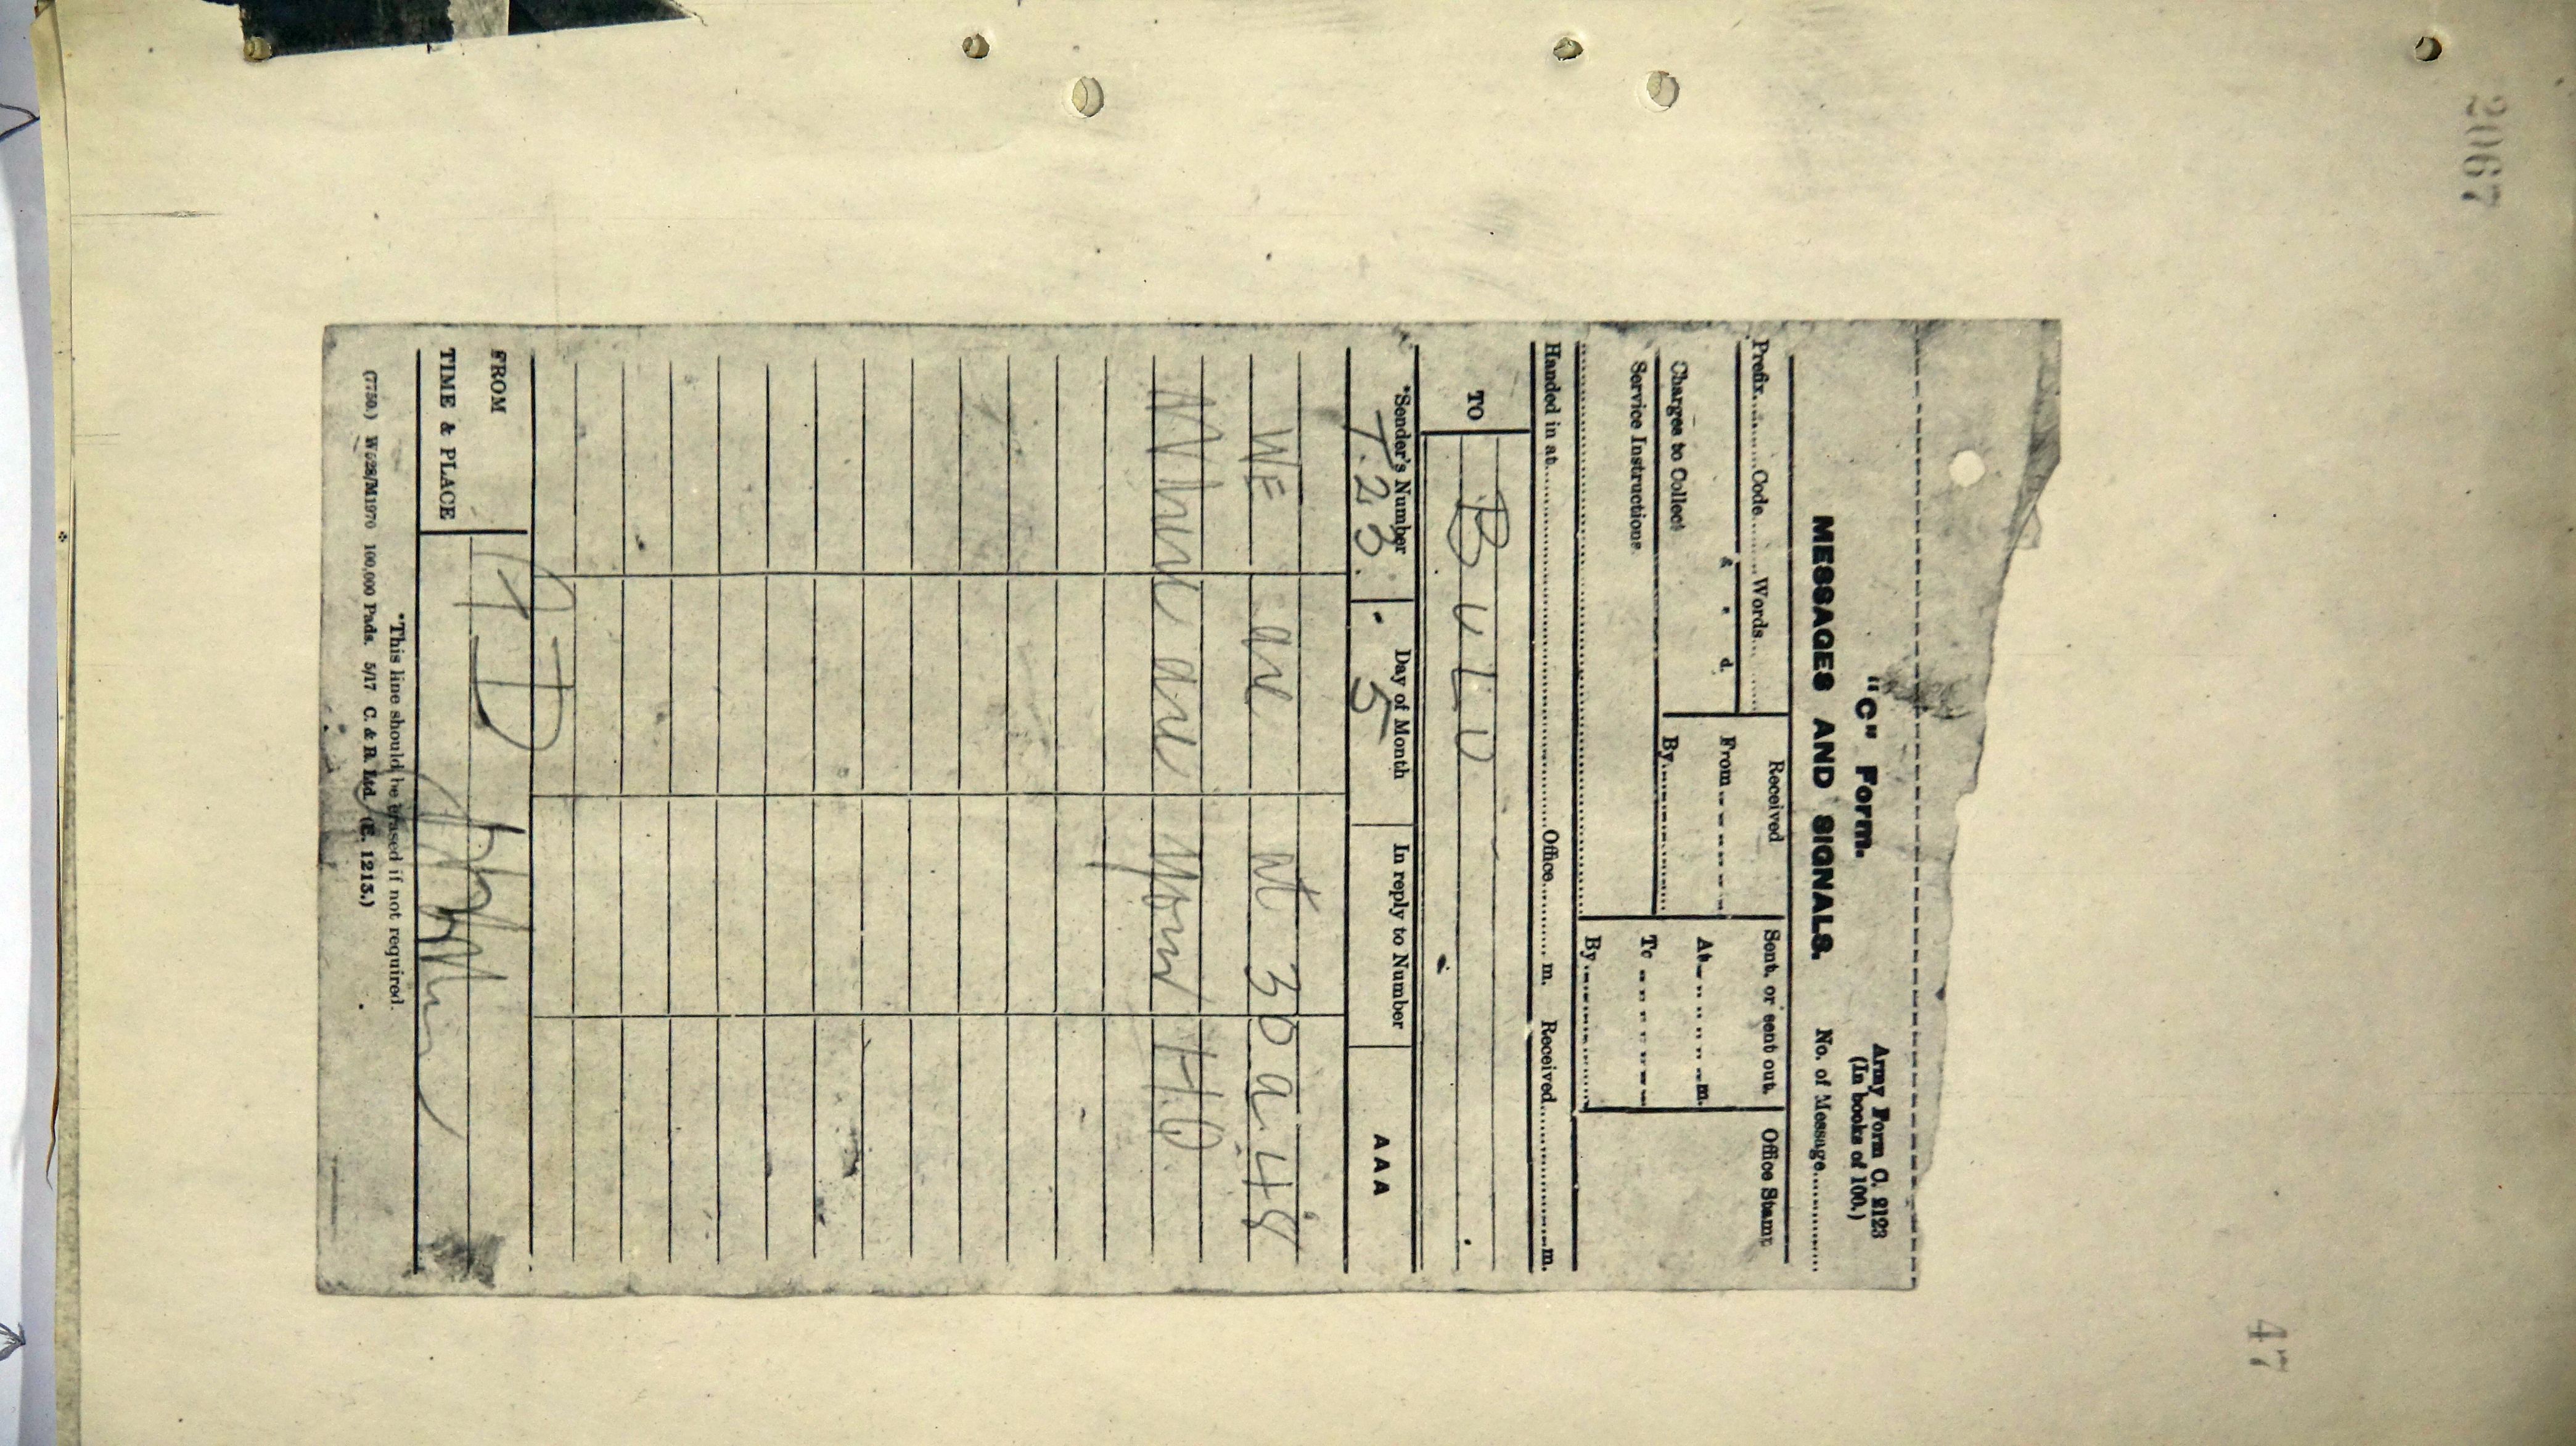 2067
47
"C" Form.
Army Form C. 2123
(In books of 100.)
MESSAGES AND SIGNALS.
No. of Message............
Prefix.........Code.........Words.........
Received
Sent, or sent out.
Office Stamp
£ s. d.
From
At ........m.
Charges to Collect
By
To
Service Instructions
By
Handed in at..............................Office..........m. Received..............m.
TO
BULU
*Sender's Number
Day of Month
In reply to Number
AAA
T.23.
5
WE are at 30 a.4.8
Where are your HQ
FROM
TIME & PLACE
*This line should be erased if not required.
(7750.) W528/M1970 100,000 Pads. 5/17 C. & R. Ltd. (E. 1213.)